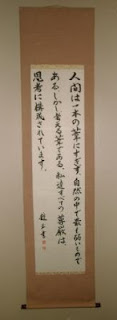 人間は一本の葦にすぎず、自然の中で最も弱いもので
ある。しかし考える葦である。私達すべての尊厳は、
思考に構成されています。